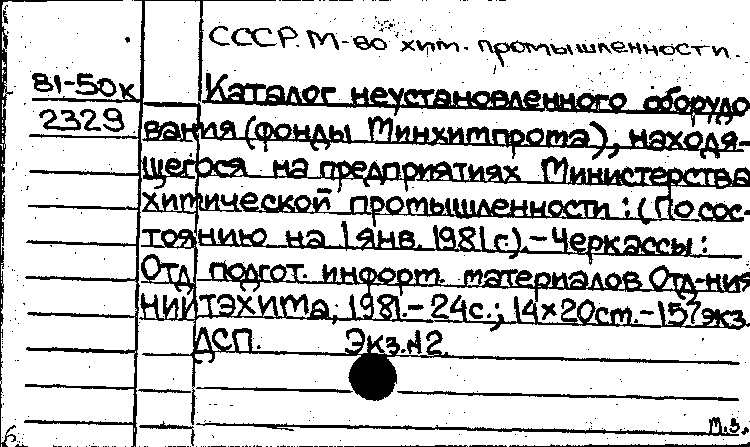 СССР. М-во хим. промышленности.
81-50к
2329
Каталог неустановленного оборудо
вания (фонды Минхимпрота), находя-
щегося на предприятиях Министерства
химической промышленности: (По сос-
тоянию на 1 янв. 1981 г.). - Черкассы:
Отд подгот. информ. материалов Отд-ния
НИИТЭХИМа, 1981. - 24с.; 14×20см. - 157экз.
ДСП. Экз. №2.
м.з.